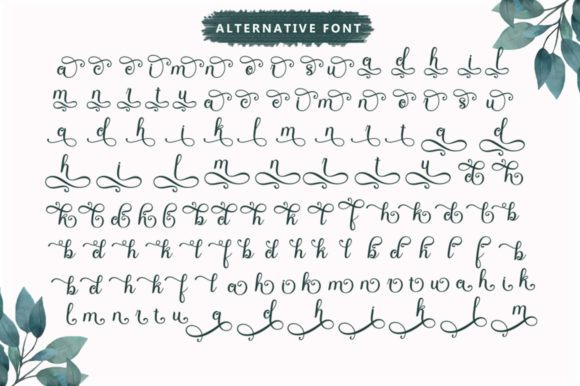 ALTERNATIVE FONT
a c e i m n o r s u a d h i l
m n l t u a c e i m n o r s u
a d h i k l m n l t a d
h i l m n l t u d h
k b d k b b d h k l f h k d t b
b d h k l f b d h k l b d h l f b
b d h k f l a h o k m n o t u a h i k
l m n l t u a d h i k l m